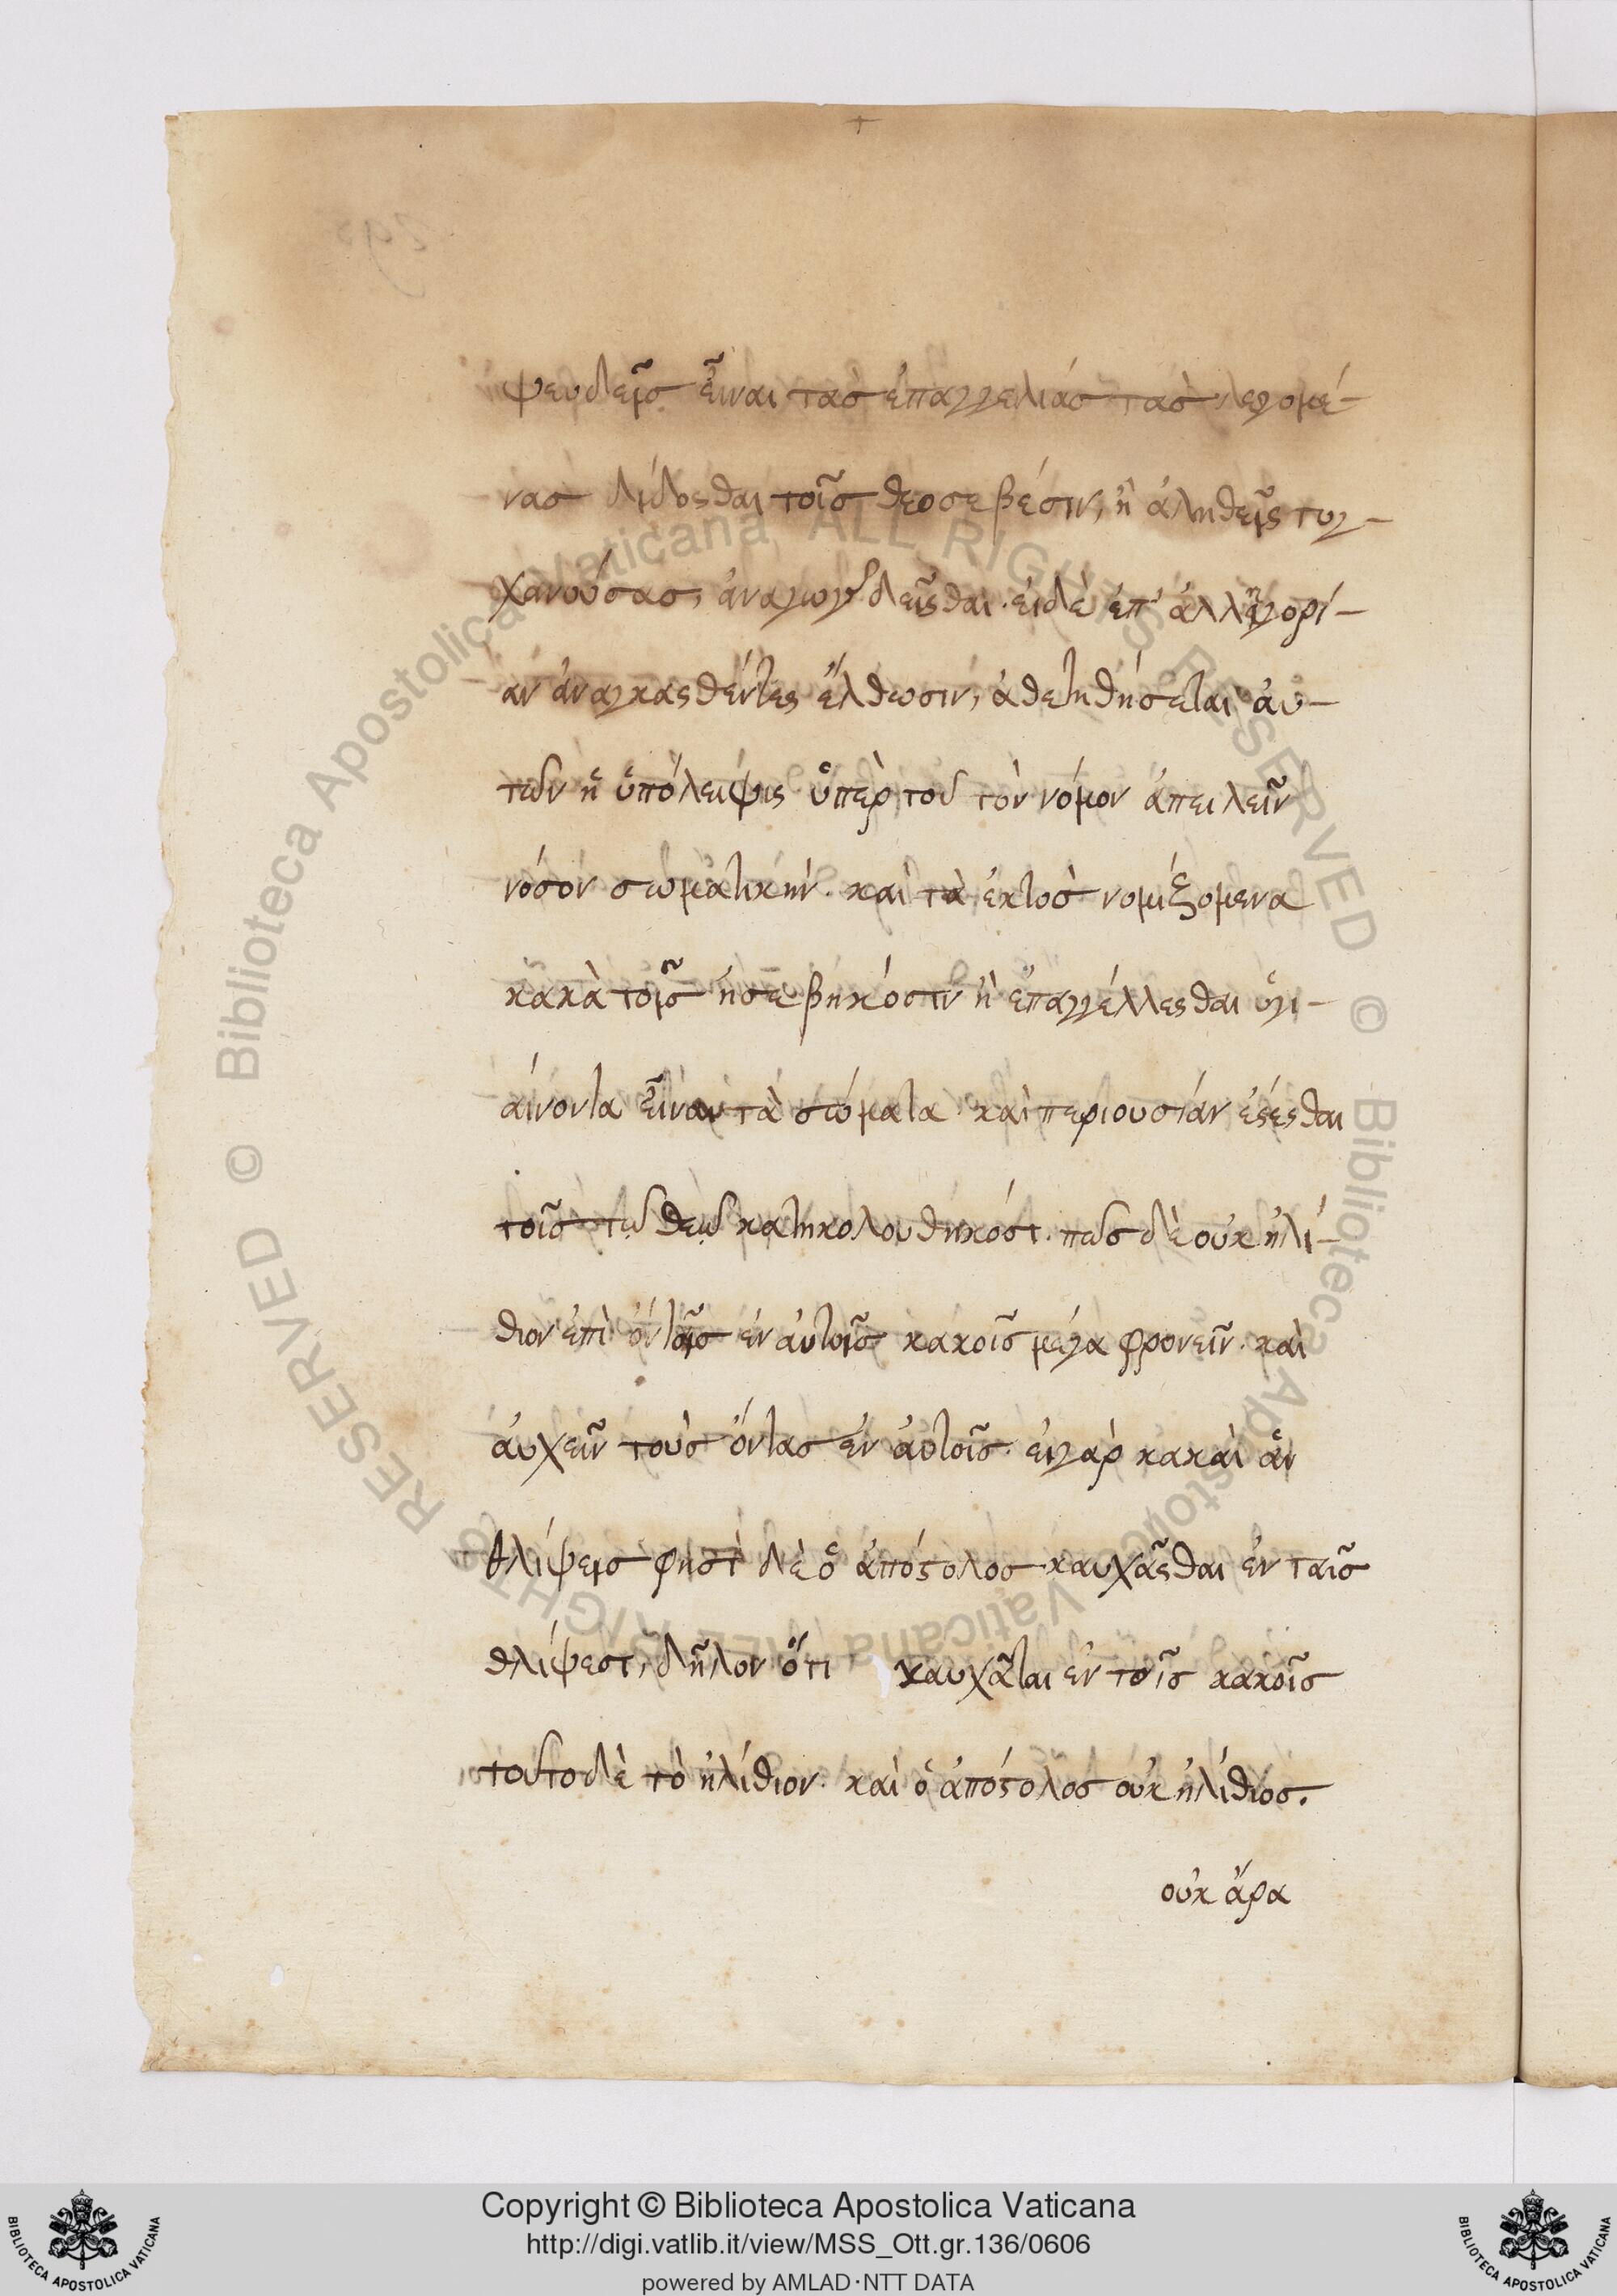 ψευδεῖς εἶναι τὰς ἐπαγγελίας τὰς λεγομέ-
νας δίδοσθαι τοῖς θεοσεβέσιν, ἢ ἀληθεῖς τυγ-
χανούσας, ἀναγωγῆς δεῖσθαι. εἰ δὲ ἐπ' ἀλληγορί-
αν ἀναγκασθέντες ἔλθωσιν, ἀθετηθήσεται αὐ-
τῶν ἡ ὑπόλειψις ὑπὲρ τοῦ τὸν νόμον ἀπειλεῖν
νόσον σωματικὴν. καὶ τὰ ἐκτὸς νομιζομενα
κακὰ τοῖς ἠσεβηκόσιν ἢ ἐπαγγέλλεσθαι ὑγι-
αίνοντα εἶναι τὰ σώματα. καὶ περιουσίαν ἔσεσθαι
τοῖς τῷ θεῷ κατηκολουθηκόσι. πῶς δὲ οὐκ ἠλί-
θιον ἐπὶ ὄντοις ἐν αὐτοῖς κακοῖς μέγα φρονεῖν. καὶ
αὐχεῖν τοὺς ὄντας ἐν αὐτοῖς. εἰ γὰρ κακαὶ ἂν
θλίψεις φησὶ δὲ ὁ ἀπόστολος καυχᾶσθαι ἐν ταῖς
θλίψεσι, δῆλον ὅτι καυχᾶται ἐν τοῖς κακοῖς
τοῦτο δὲ τὸ ἠλίθιον. καὶ ὁ ἀπόστολος οὐκ ἠλίθιος.
οὐκ ἄρα
© Biblioteca Apostolica Vaticana ALL RIGHTS RESERVED © Biblioteca Apostolica Vaticana ALL RIGHTS RESERVED
Copyright © Biblioteca Apostolica Vaticana
http://digi.vatlib.it/view/MSS_Ott.gr.136/0606
powered by AMLAD·NTT DATA
BIBLIOTECA APOSTOLICA VATICANA
BIBLIOTECA APOSTOLICA VATICANA